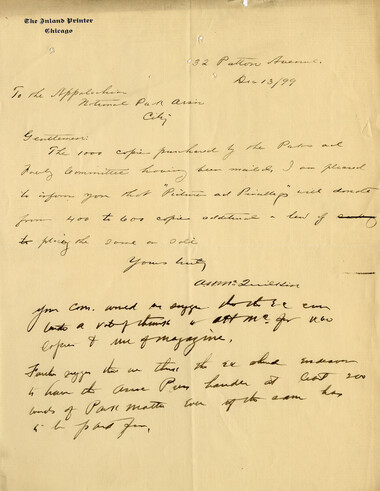 The Inland Printer
Chicago
32 Patton Avenue.
Dec 13/99
To the Appalachian
National Park Assn
City
Gentlemen:
The 1000 copies purchased by the Parks and
Committee having been mailed, I am pleased
to inform you that "Pictures and Printings" will donate
from 400 to 600 copies additional
to placing the same on sale
Yours truly
you. Com. would suggest that the Ex Com
a vote of thanks to Mc. for
copies & use of magazine.
Further suggest the Ex should Endeavor
to have the Press handle at least 200
words of Park matter Even if the same has
to be paid for.